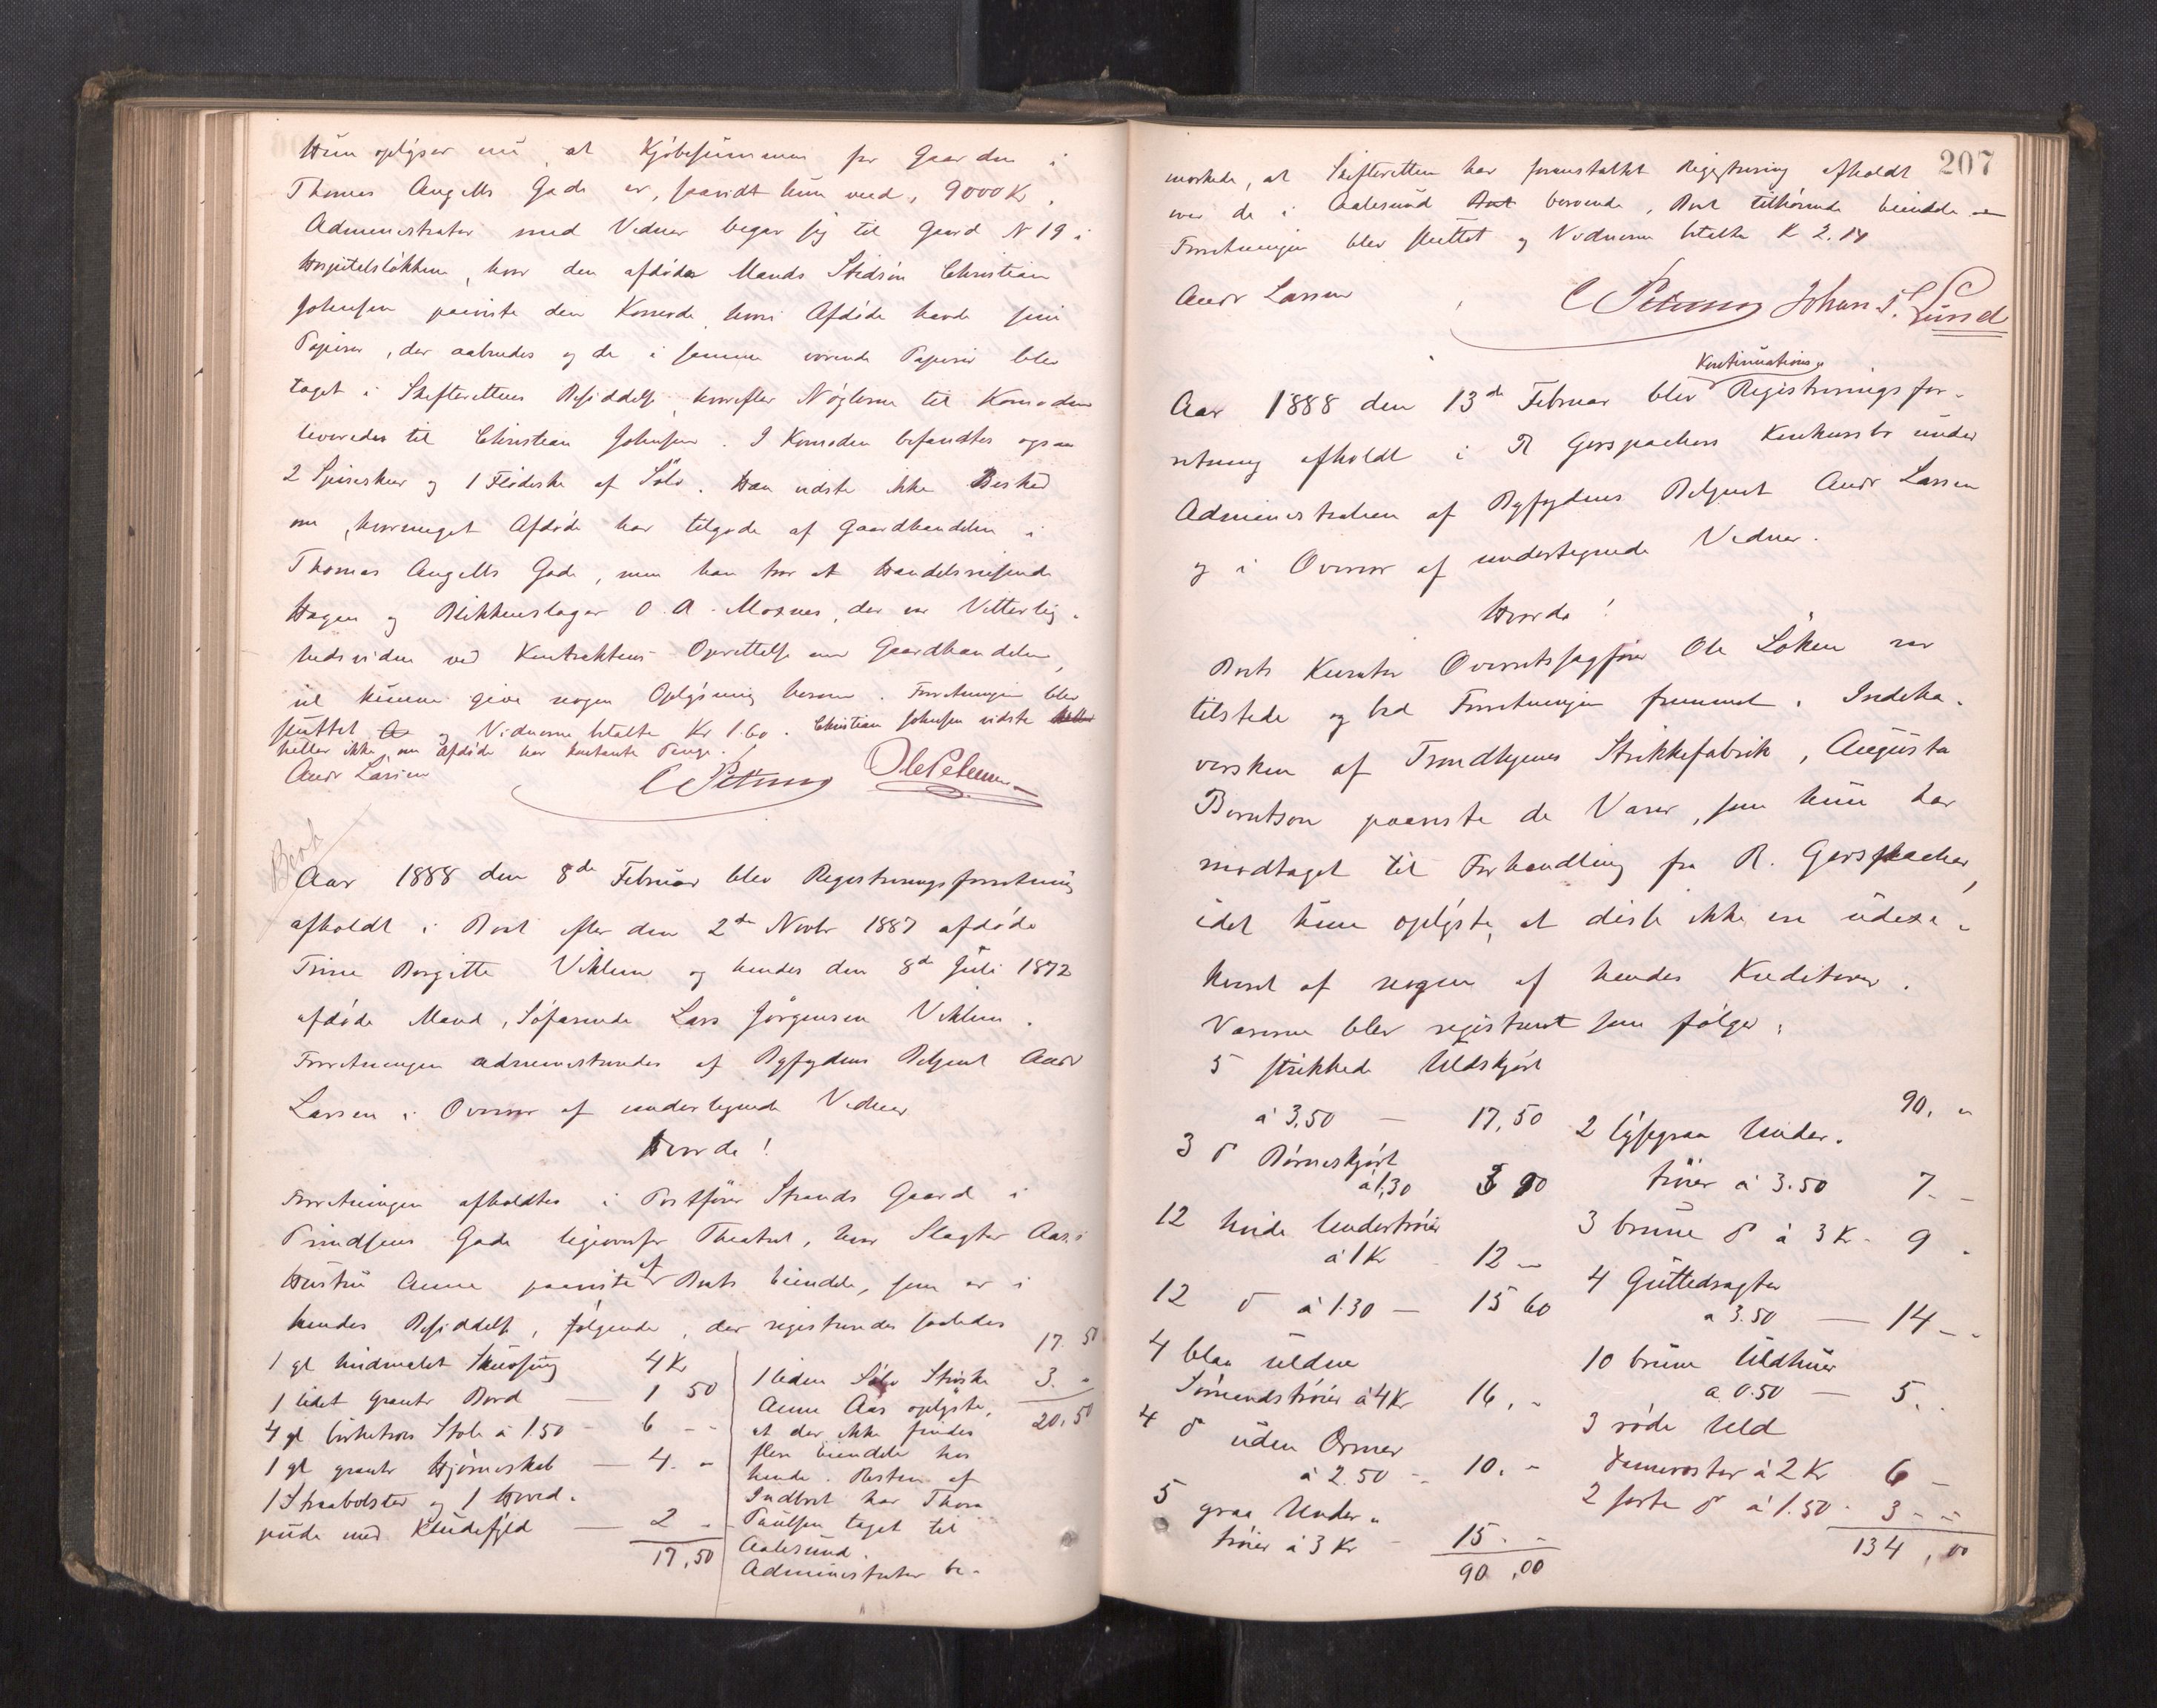 Hun oplyser nu, at Kjöbesummen for Gaarden i
Thomas Angells Gade er, saavidt hun veed, 9000 Kr.
Administrator med Vidner begav sig til Gaard No 19 i
Hospitalslökken, hvor den afdödes Mands Stedsön Christian
Johnsen paaviste den Komode, hvori Afdöde havde sine
Papirer, der aabnedes og de i samme værende Papirer blev
taget i Skifterettens Besiddelse, hvorefter Nöglerne til Komoden
leveredes til Christian Johnsen. I Komoden befandtes ogsaa
2 Spiseskeer og 1 Flödeske af Sölv. Han vidste ikke Besked
om, hvormeget Afdöde har tilgode af Gaardhandelen i
Thomas Angells Gade, men han tror at Handelsreisende
Hagen og Blikkenslager O. A. Moxnes, der var Vitterlig-
hedsvidner ved Kontraktens Oprettelse om Gaardhandelen,
vil kunne give nogen Oplysning herom. Forretningen blev
sluttet og Vidnerne betalte Kr 1.60. Christian Johnsen vidste
heller ikke, om Afdöde har kontante Penge.
Andr Larsen C Petersen Ole Petersen
Aar 1888 den 8de Februar blev Registreringsforretning
afholdt i Boet efter den 2den Novbr 1887 afdöde
Trine Borgitte Viklem og hendes den 8de Juli 1872
afdöde Mand, Söfarende Lars Jörgensen Viklem.
Forretningen administreredes af Byfogdens Betjent Andr
Larsen i Overvær af undertegnede Vidner
Hvorda!
Forretningen afholdtes i Postförer Strands Gaard i
Prindsens Gade ligeoverfor Theatret, hvor Slagter Aas's
Hustru Anna paaviste af Boets Eiendele, som er i
hendes Besiddelse, fölgende, der registreredes saaledes
1 gl hvidmalet Skuvseng 4 Kr
1 lidet Granbr Bord — 1 50
4 gl birketræs Stole à 1.50 - 6 - -
1 gl granbr Hjörneskab — 4. -
1 Straabolster og 1 Hoved-
pude med Kludefyld — 2 -
17,50
17. 50
1 liden Sölv Ströske 3. -
20.50
Anna Aas oplyste,
at der ikke findes
flere Eiendele hos
hende. Resten af
Indboet har Thora
Paulsen taget til
Aalesund.
Administrator be-
207
mærkede, at Skifteretten har foranstaltet Registrering afholdt
over de i Aalesund beroende, Boet tilhörende Eiendele
Forretningen blev sluttet og Vidnerne betalte K 2.14
Andr Larsen C Petersen Johan S. Lund
Kontinuations-
Aar 1888 den 13de Februar blev Registreringsfor-
retning afholdt i R Gerspachers Konkursbo under
Administration af Byfogdens Betjent Andr Larsen
og i Overvær af undertegnede Vidner.
Hvorda!
Boets Kurator Overretssagförer Ole Löken var
tilstede og bad Forretningen fremmet. Indeha-
versken af Trondhjems Strikkefabrik, Augusta
Berntson paaviste de Varer, som hun har
modtaget til Forhandling fra R. Gerspacher,
idet hun oplyste, at disse ikke er udexe-
kveret af nogen af hendes Kreditorer.
Varerne blev registreret som fölger:
5 strikkede Uldskjört
à 3,50 — 17,50
3 do Börneskjört
à 1,30 3 90
12 hvide Undertröier
à 1 Kr - 12 —
12 do à 1.30 — 15 60
4 blaa uldne
Sömandströier à 4 Kr 16, -
4 do uden Ærmer
à 2.50 - 10. -
5 graa Under-
tröier à 3 Kr - 15. -
90,00
90, -
2 lysegraa Under-
tröier à 3.50 7. -
3 brune do à 3 Kr - 9 -
4 Guttedragter
à 3.50 — 14 - -
10 brune Uldhuer
a 0.50 — 5. -
3 röde Uld
Dameveste à 2 Kr 6 -
2 sorte do à 1.50 - 3 - -
134,00